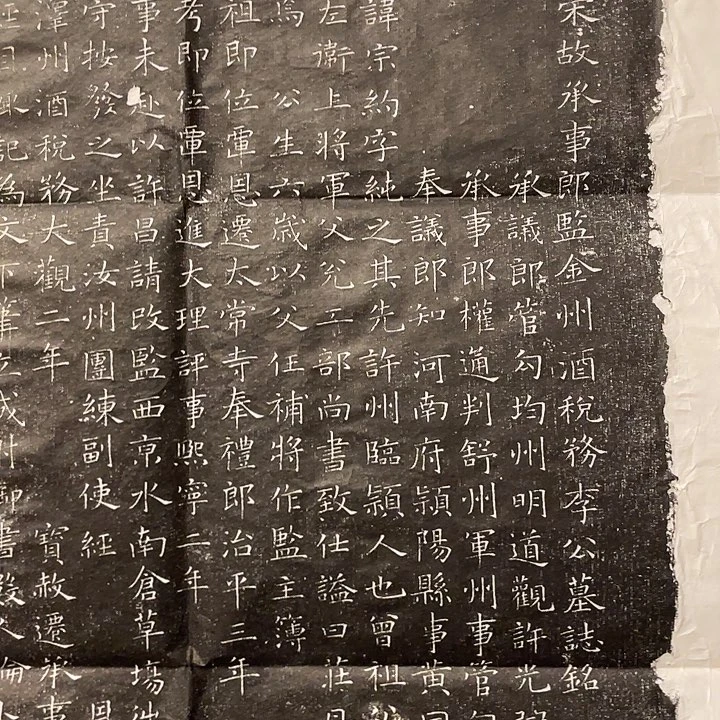 宋故承事郎監金州酒稅務李公墓誌銘
承議郎管勾均州明道觀許光
承事郎權通判舒州軍州事管勾
奉議郎知河南府潁陽縣事黃
諱宗約字純之其先許州臨潁人也曾祖
左衛上將軍父兌工部尚書致仕謚曰莊
焉 公生六歲以父任補將作監主簿
祖即位覃恩遷太常寺奉禮郎治平三年
考即位覃恩進大理評事熙寧二年
事未赴以許昌請改監西京水南倉草場
守按發之坐責汝州團練副使經 恩
澤州酒稅務大觀二年 寶赦遷承事
記為文下筆立成